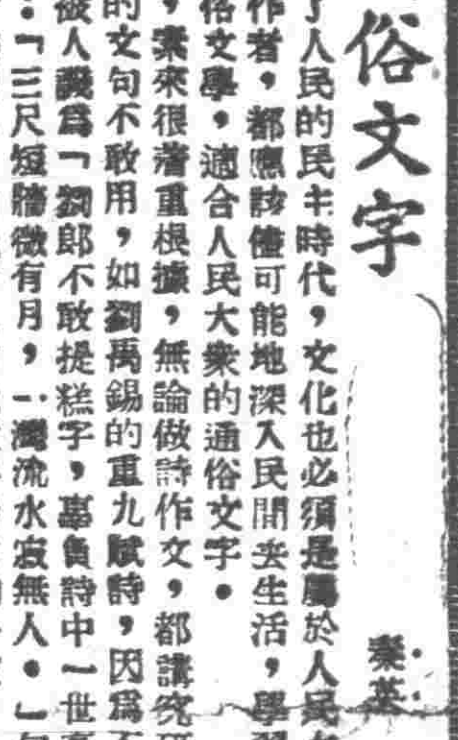 俗文字
秦英
了人民的民主時代，文化也必須是屬於人民
作者，都應該儘可能地深入民間去生活，學習
俗文學，適合人民大衆的通俗文字。
，素來很著重根據，無論做詩作文，都講究
的文句不敢用，如劉禹錫的重九賦詩，因爲
被人譏爲「劉郎不敢提糕字，辜負詩中一世
：「三尺短牆微有月，一灣流水寂無人。」